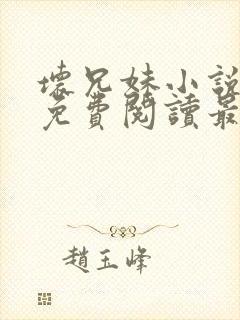 壞兄妹小說
免費閱讀最
趙玉峰